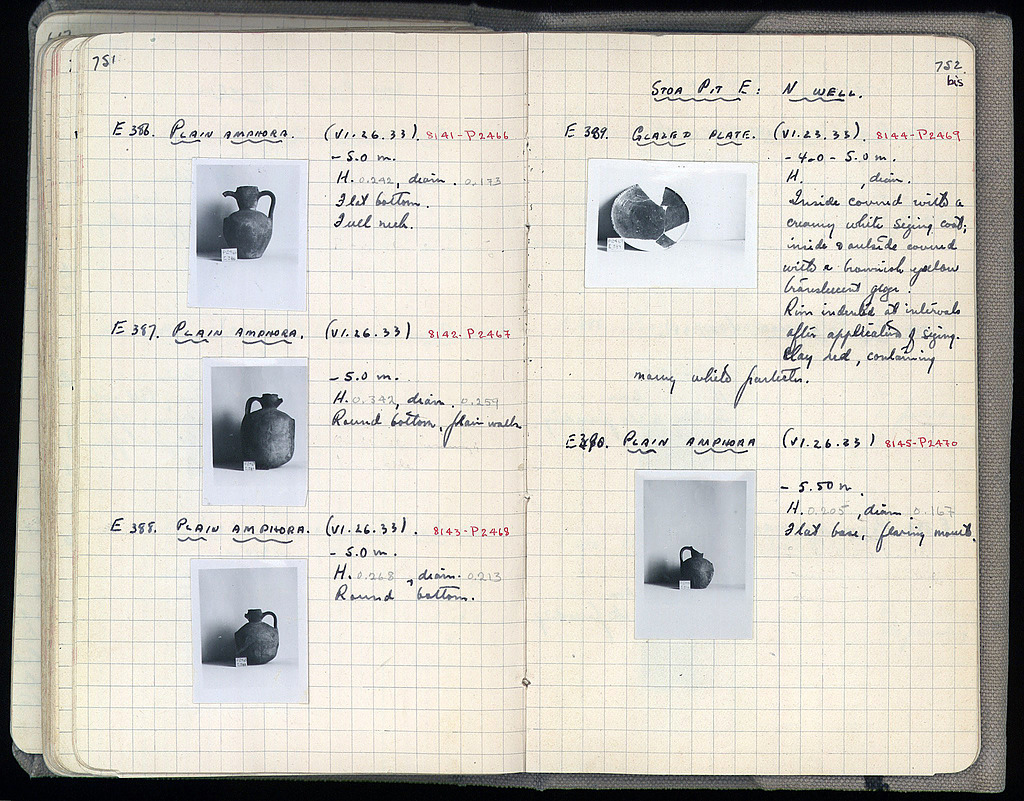 751
E 386. PLAIN AMPHORA. (VI.26.33). 8141-P2466
- 5.0 m.
H. 0.242, diam. 0.173
Flat bottom.
Full neck.
E 387. PLAIN AMPHORA. (VI.26.33) 8142-P2467
- 5.0 m.
H. 0.342, diam. 0.259
Round bottom, plain walls
E 388. PLAIN AMPHORA. (VI.26.33). 8143-P2468
- 5.0 m.
H. 0.268, diam. 0.213
Round bottom.
752
bis
STOA PIT E: N WELL.
E 389. GLAZED PLATE. (VI.23.33). 8144-P2469
- 4.0 - 5.0 m.
H. , diam.
Inside covered with a
creamy white sizing coat;
inside & outside covered
with a brownish yellow
translucent
Rim indented at intervals
after application of sizing.
Clay red, containing
many white particles.
E 390. PLAIN AMPHORA (VI.26.33) 8145-P2470
- 5.50 m.
H. 0.205, diam. 0.167
Flat base, flaring mouth.